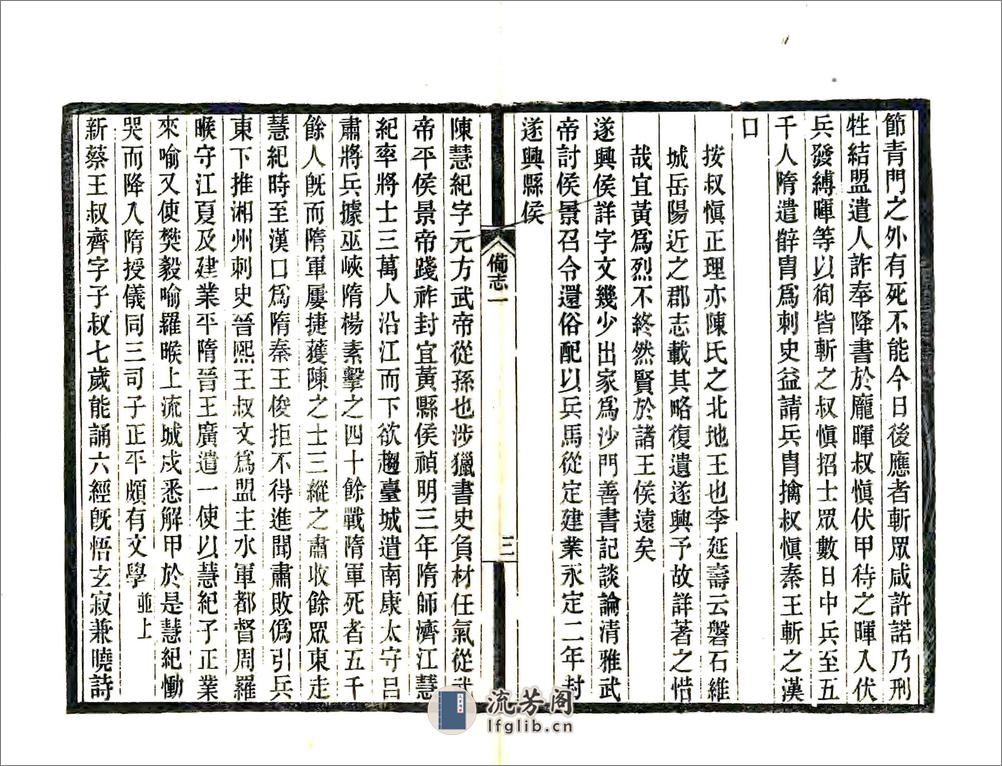 節青門之外有死不能今日後應者斬眾咸許諾乃刑
牲結盟遣人詐奉降書於龐暉叔愼伏甲待之暉入伏
兵發縛暉等以徇皆斬之叔愼招士眾數日中兵至五
千人隋遣薛胄爲刺史益請兵胄擒叔愼秦王斬之漢
口
按叔愼正理亦陳氏之北地王也李延壽云磐石維
城岳陽近之郡志載其略復遺遂興予故詳著之惜
哉宜黃爲烈不終然賢於諸王侯遠矣
遂興侯詳字文幾少出家爲沙門善書記談論清雅武
帝討侯景召令還俗配以兵馬從定建業永定二年封
遂興縣侯
備志一
三
陳慧紀字元方武帝從孫也涉獵書史負材任氣從武
帝平侯景帝踐祚封宜黃縣侯禎明三年隋師濟江慧
紀率將士三萬人沿江而下欲趨臺城遣南康太守呂
肅將兵據巫峽隋楊素擊之四十餘戰隋軍死者五千
餘人旣而隋軍屢捷獲陳之士三縱之肅收餘眾東走
慧紀時至漢口爲隋秦王俊拒不得進聞肅敗僞引兵
東下推湘州刺史晉熙王叔文爲盟主水軍都督周羅
睺守江夏及建業平隋晉王廣遣一使以慧紀子正業
來喻又使樊毅喻羅睺上流城戍悉解甲於是慧紀慟
哭而降入隋授儀同三司子正平頗有文學 並上
新蔡王叔齊字子叔七歲能誦六經旣悟玄寂兼曉詩
流芳阁
lfglib.cn